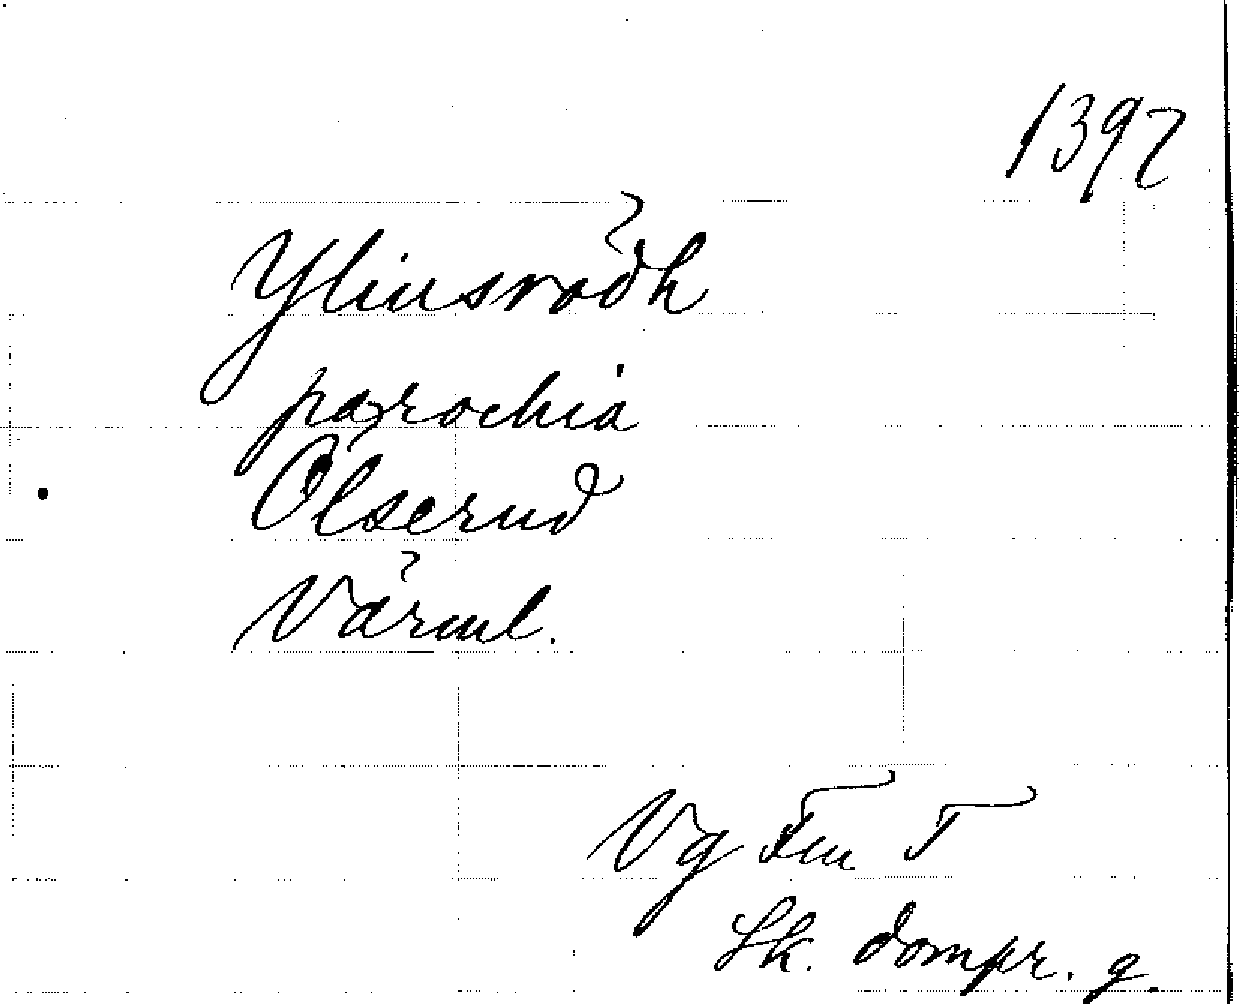 1397
Yliusrödh
parochia
Ölserud
Värml.
Vg Fm T
Sk. dompr. g.